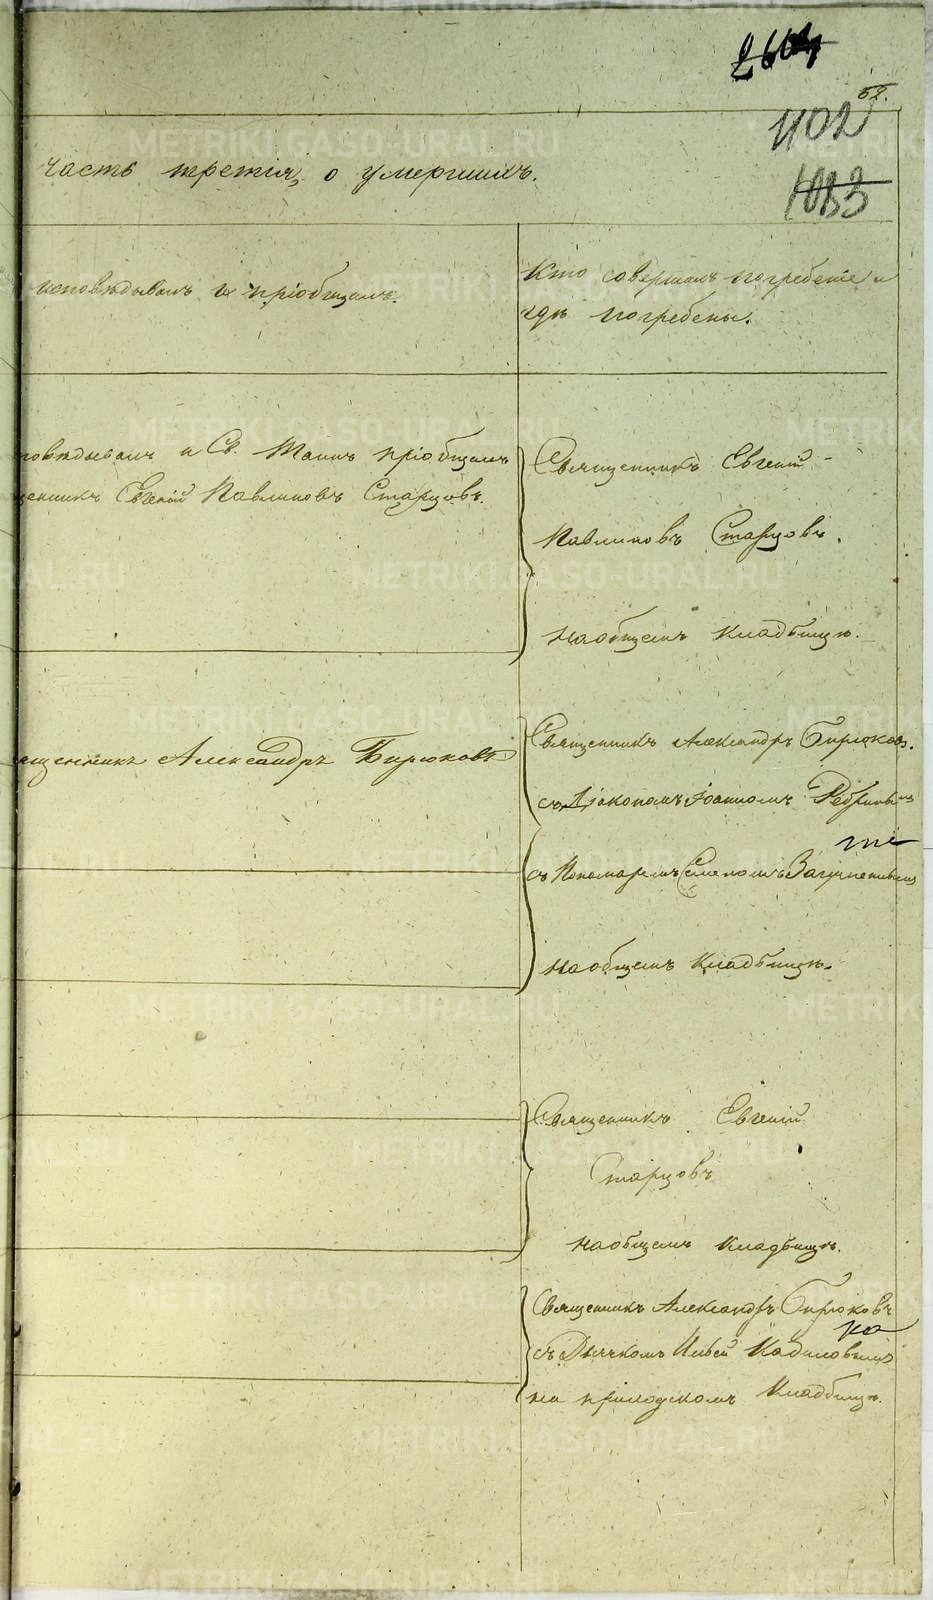 52.
1102
1033
часть третія, о умершихъ.
исповѣдывалъ и пріобщалъ.
Кто совершалъ погребеніе и
гдѣ погребены.
повѣдывалъ и Св. Таинъ пріобщалъ
щенникъ Евгеній Павлиновъ Старцовъ.
Священникъ Евгеній
Павлиновъ Старцовъ.
на общемъ кладбищѣ.
ященникъ Александръ Бирюковъ
Священникъ Александръ Бирюковъ.
съ Діакономъ Іоанномъ
съ Пономаремъ
на общемъ кладбищѣ.
Священникъ Евгеній
Старцовъ
на общемъ кладбищѣ.
Священникъ Александръ Бирюковъ
съ Дьячкомъ Ильей
на приходскомъ кладбищѣ.
METRIKI.GASO-URAL.RU